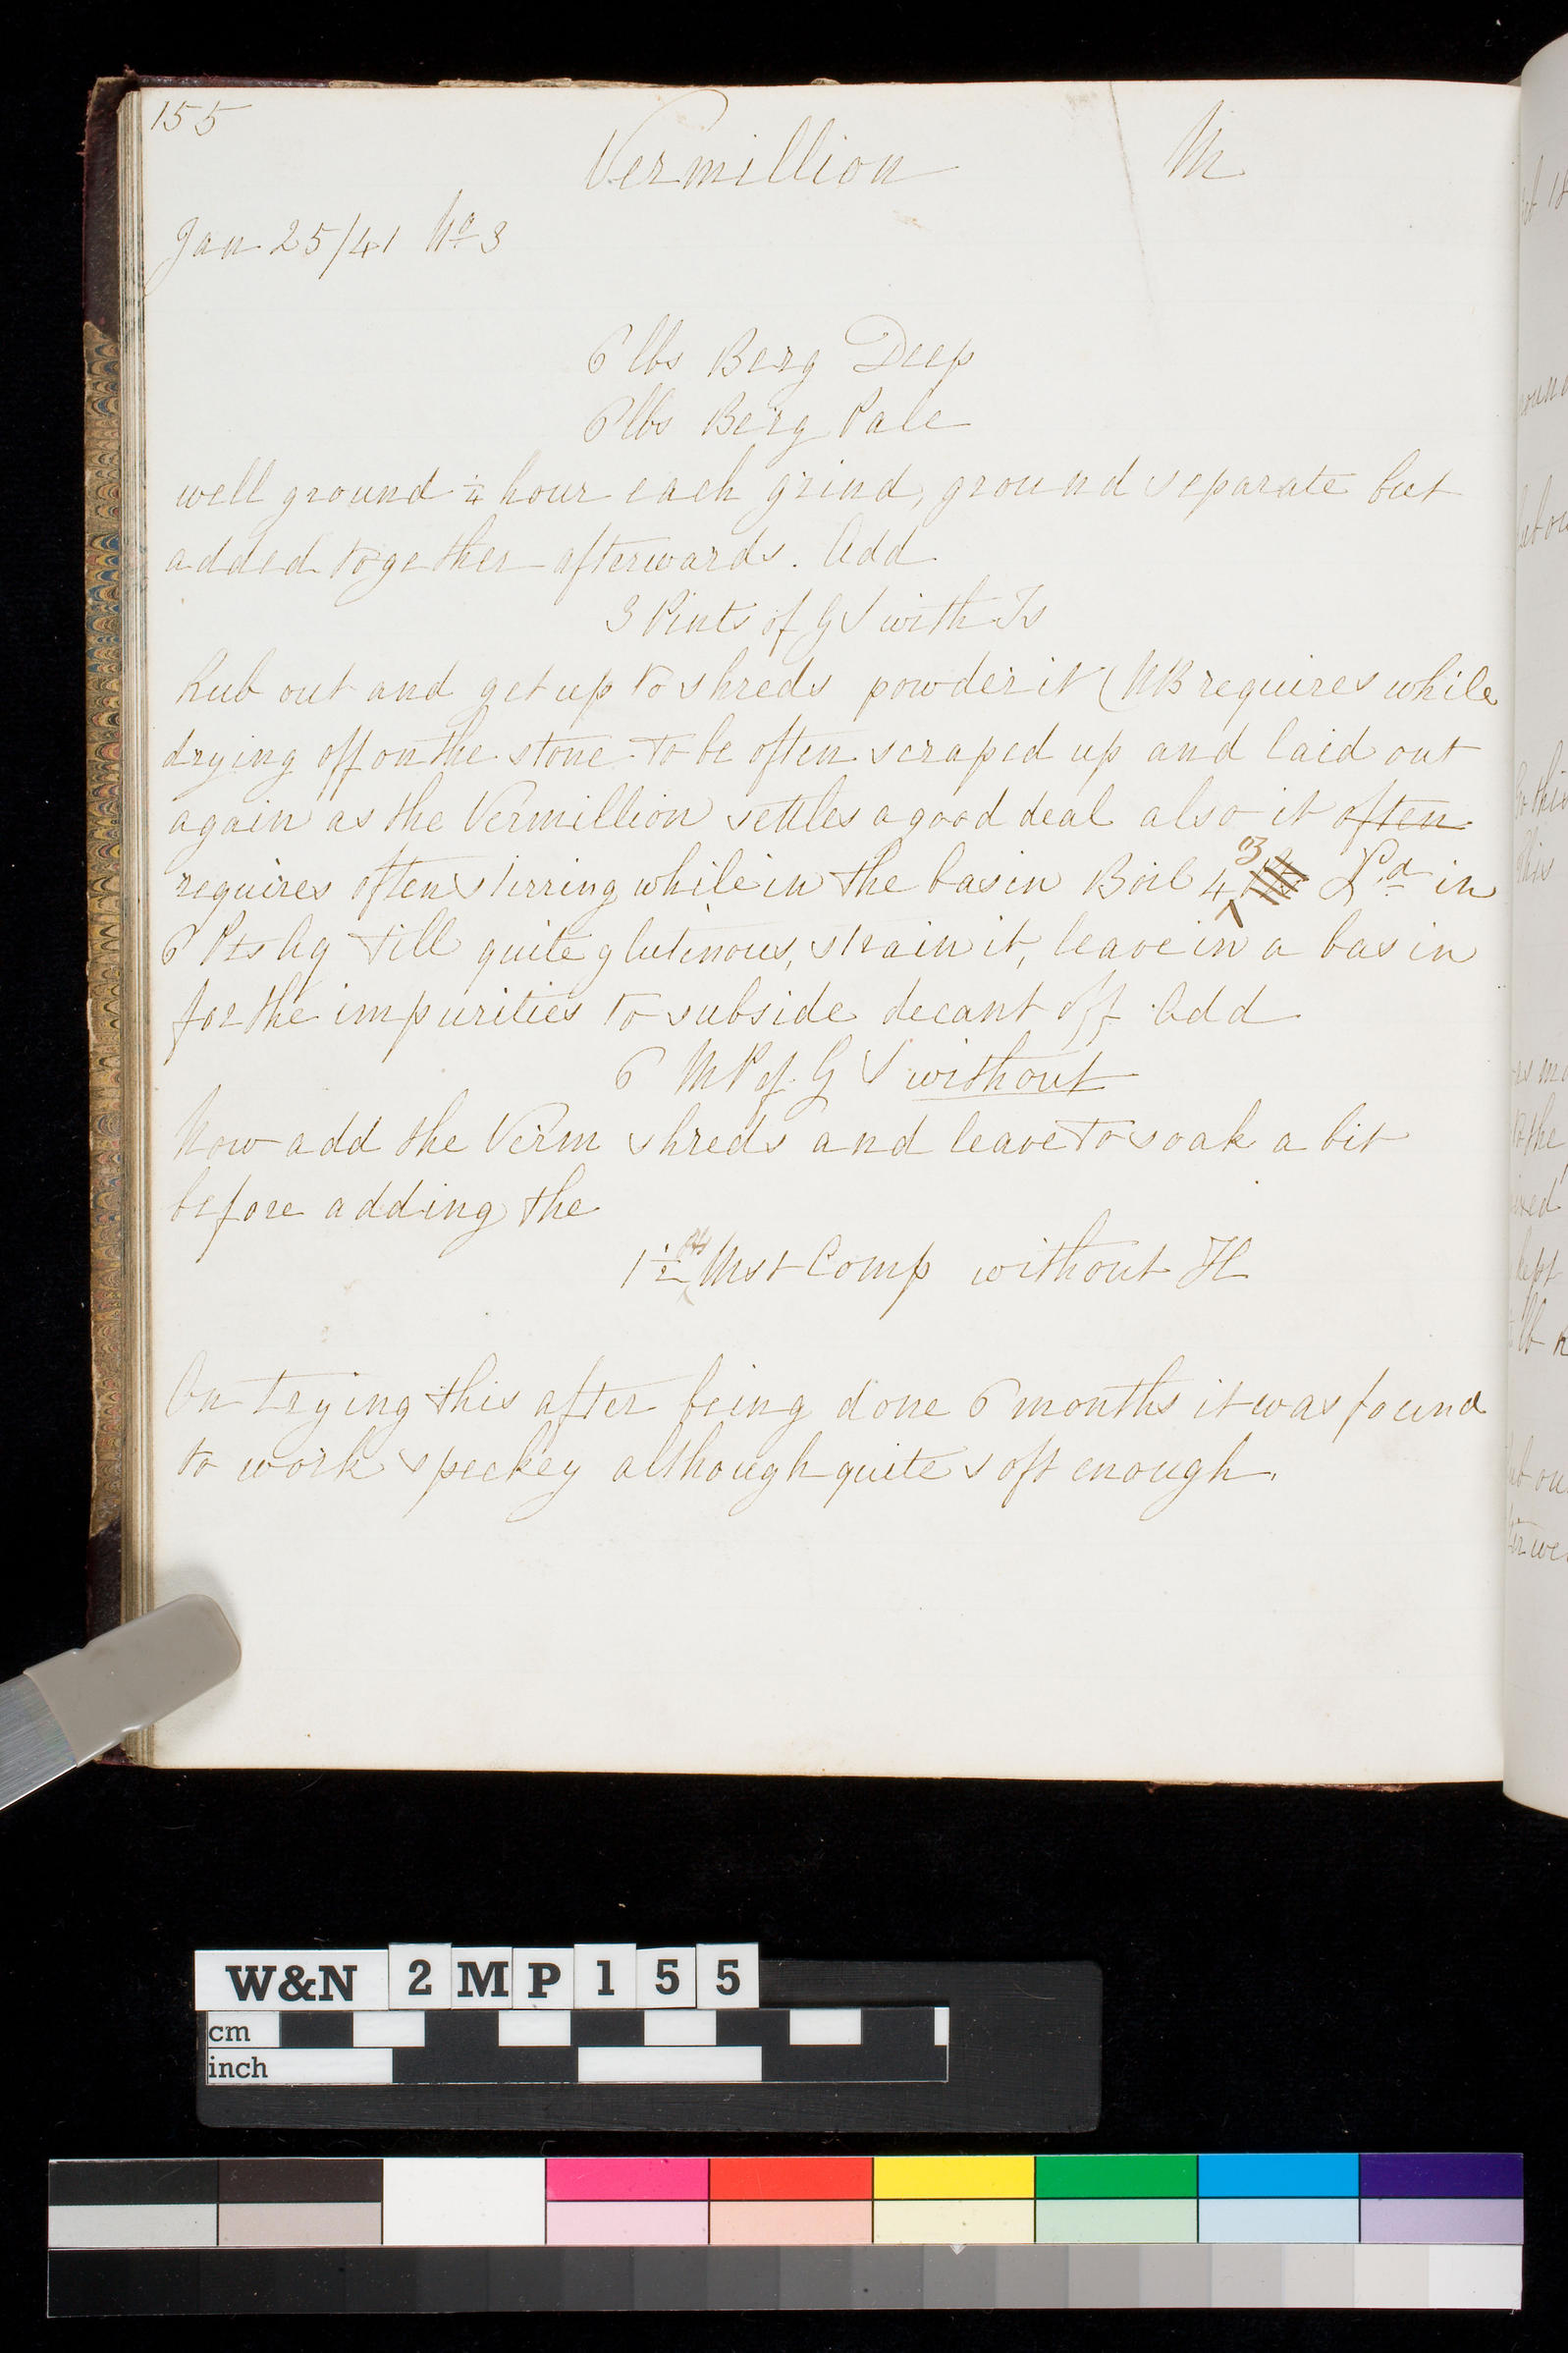 155
Vermillion M
Jan 25/41 No 3
6 lbs Berg Deep
6 lbs Berg Pale
well ground ¼ hour each grind, ground separate but
added together afterwards. Add
3 Pints of G S with Is
Rub out and get up to shreds powder it (NB requires while
drying off on the stone to be often scraped up and laid out
again as the Vermillion settles a good deal also it often
requires often stirring while in the basin Boil 4 oz in
6 Pts Aq till quite glutinous, strain it, leave in a basin
for the impurities to subside decant off Add
6 MP of G S without
Now add the Verm shreds and leave to soak a bit
before adding the
1½ Mst Comp without H
On trying this after being done 6 months it was found
to work speckey although quite soft enough.
W&N 2MP155
cm
inch